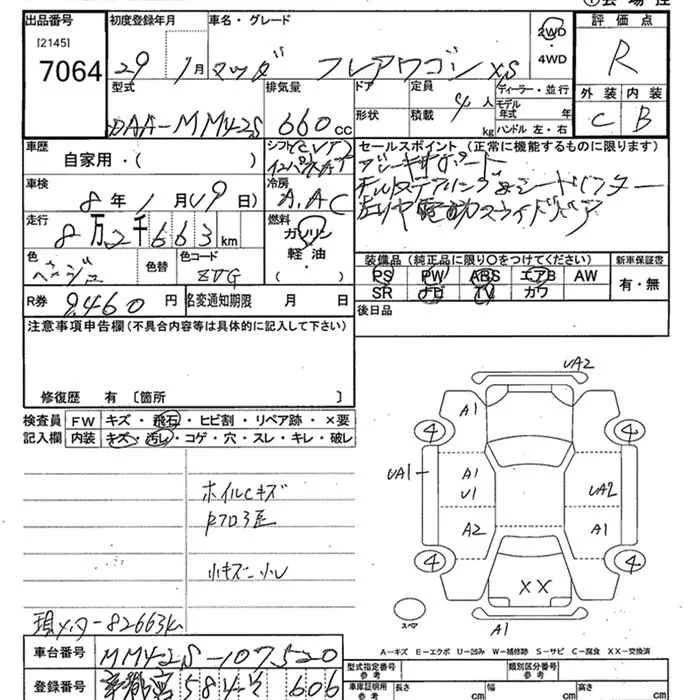 ①会場控
出品番号
[2145]
7064
初度登録年月
29 1月
車名・グレード
マツダ フレアワゴン XS
2WD
・
4WD
評価点
R
外装 内装
C B
型式
DAA-MM42S
排気量
660cc
ドア
形状
定員
4人
積載
kg
ディーラー・並行
モデル年式 年
ハンドル 左・右
車歴
自家用・( )
シフト CVT
インパネAT
セールスポイント (正常に機能するものに限ります)
車検
8年1月(19日)
冷房
A.AC
走行
8万2千663km
燃料
ガソリン
軽油
・
( )
色
ベージュ
色替
色コード
ZVG
装備品 (純正品に限り○をつけてください)
PS PW ABS エアB AW
SR ナビ TV カワ
新車保証書
有・無
R券 9,460円
名変通知期限 月 日
後日品
注意事項申告欄(不具合内容等は具体的に記入して下さい)
修復歴 有〔箇所 〕
検査員記入欄
FW キズ・飛石・ヒビ割・リペア跡・×要
内装 キズ・汚し・コゲ・穴・スレ・キレ・破レ
ホイルCキズ
小キズ・小凹
現メータ-82663k
UA2
A1
4
4
A1
U1
UA1
UA2
A2
A1
4
4
XX
スペア
A1
A-キズ E-エクボ U-凹み W-補修跡 S-サビ C-腐食 XX-交換済
車台番号 MM42S-107520
登録番号 584 そ 606
型式指定番号
参考
類別区分番号
参考
車庫証明用
参考
長さ cm
幅 cm
高さ cm